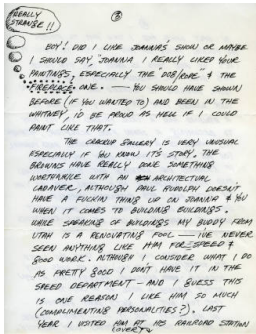 REALLY
STRANGE!!
③
BOY! DID I LIKE JOANNA'S SHOW OR MAYBE
I SHOULD SAY, "JOANNA I REALLY LIKED YOUR
PAINTINGS, ESPECIALLY THE "DOB/ROPE" & THE
FIREPLACE ONE. — YOU SHOULD HAVE SHOWN
BEFORE (IF YOU WANTED TO) AND BEEN IN THE
WHITNEY, I'D BE PROUD AS HELL IF I COULD
PAINT LIKE THAT.
THE GALLERY IS VERY UNUSUAL
ESPECIALLY IF YOU KNOW ITS STORY. THE
BROWNS HAVE REALLY DONE SOMETHING
WORTHWHILE WITH AN ARCHITECTURAL
CADAVER, ALTHOUGH PAUL RUDOLPH DOESN'T
HAVE A FUCKIN THING UP ON JOANNA & YOU
WHEN IT COMES TO BUILDING BUILDINGS.
WHILE SPEAKING OF BUILDINGS MY BUDDY FROM
UTAH IS A RENOVATING FOOL — I'VE NEVER
SEEN ANYTHING LIKE HIM FOR SPEED &
GOOD WORK. ALTHOUGH I CONSIDER WHAT I DO
AS PRETTY GOOD I DON'T HAVE IT IN THE
SPEED DEPARTMENT – AND I GUESS THIS
IS ONE REASON I LIKE HIM SO MUCH
(COMPLIMENTING PERSONALITIES?). LAST
YEAR I VISITED HIM AT HIS RAILROAD STATION
(OVER)